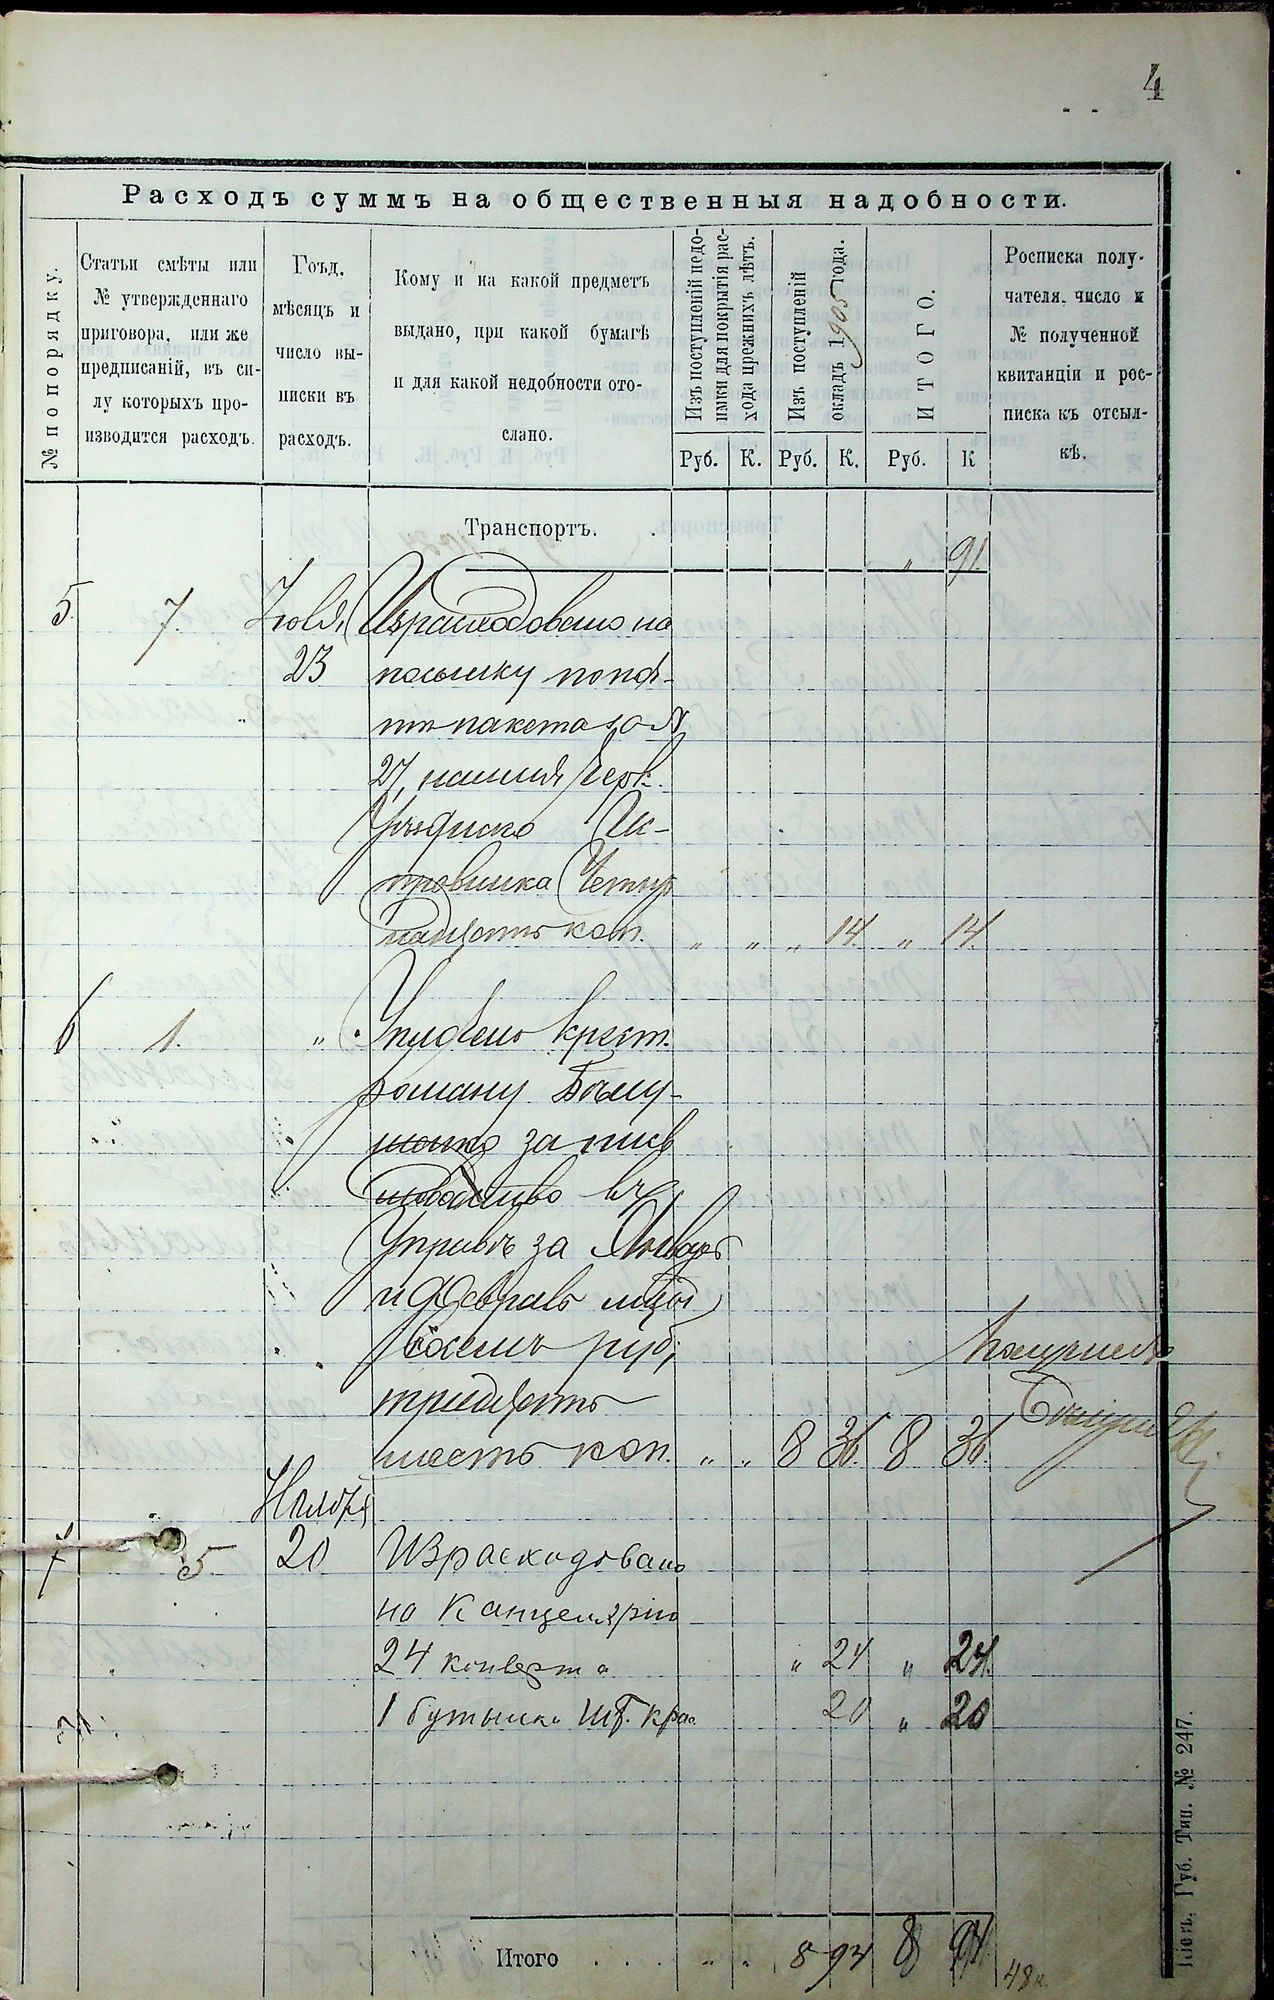 4
Расходъ суммъ на общественныя надобности.
№ по порядку.
Статьи смѣты или
№ утвержденнаго
приговора, или же
предписаній, въ си-
лу которыхъ про-
изводится расходъ.
Годъ,
мѣсяцъ и
число вы-
писки въ
расходъ.
Кому и на какой предметъ
выдано, при какой бумагѣ
и для какой недобности ото-
слано.
Изъ поступленій недо-
имки для покрытія рас-
хода прежнихъ лѣтъ.
Изъ поступленій
окладъ 1905 года.
ИТОГО.
Росписка полу-
чателя, число и
№ полученной
квитанціи и рос-
писка къ отсыл-
кѣ.
Руб. К. Руб. К. Руб. К
Транспортъ. . „ 91.
5. 7. Іюля, Израсходовано на
23 посылку по поч-
тѣ пакета за №
27, на имя
„ „ „ 14. „ 14.
6 1. „ Уплочено Крест.
Роману
за
въ
Управѣ за Январь
и Февраль
Восемь руб,
тридцать
шесть коп. „ „ 8 36. 8 36.
Ноября
7 5 20 Израсходовано
на Канцелярію
24 конверта „ 24 „ 24.
1 бутылка 20 „ 20
Итого . . . „ . 8 94 8 94
48к.
Губ. Тип. № 247.